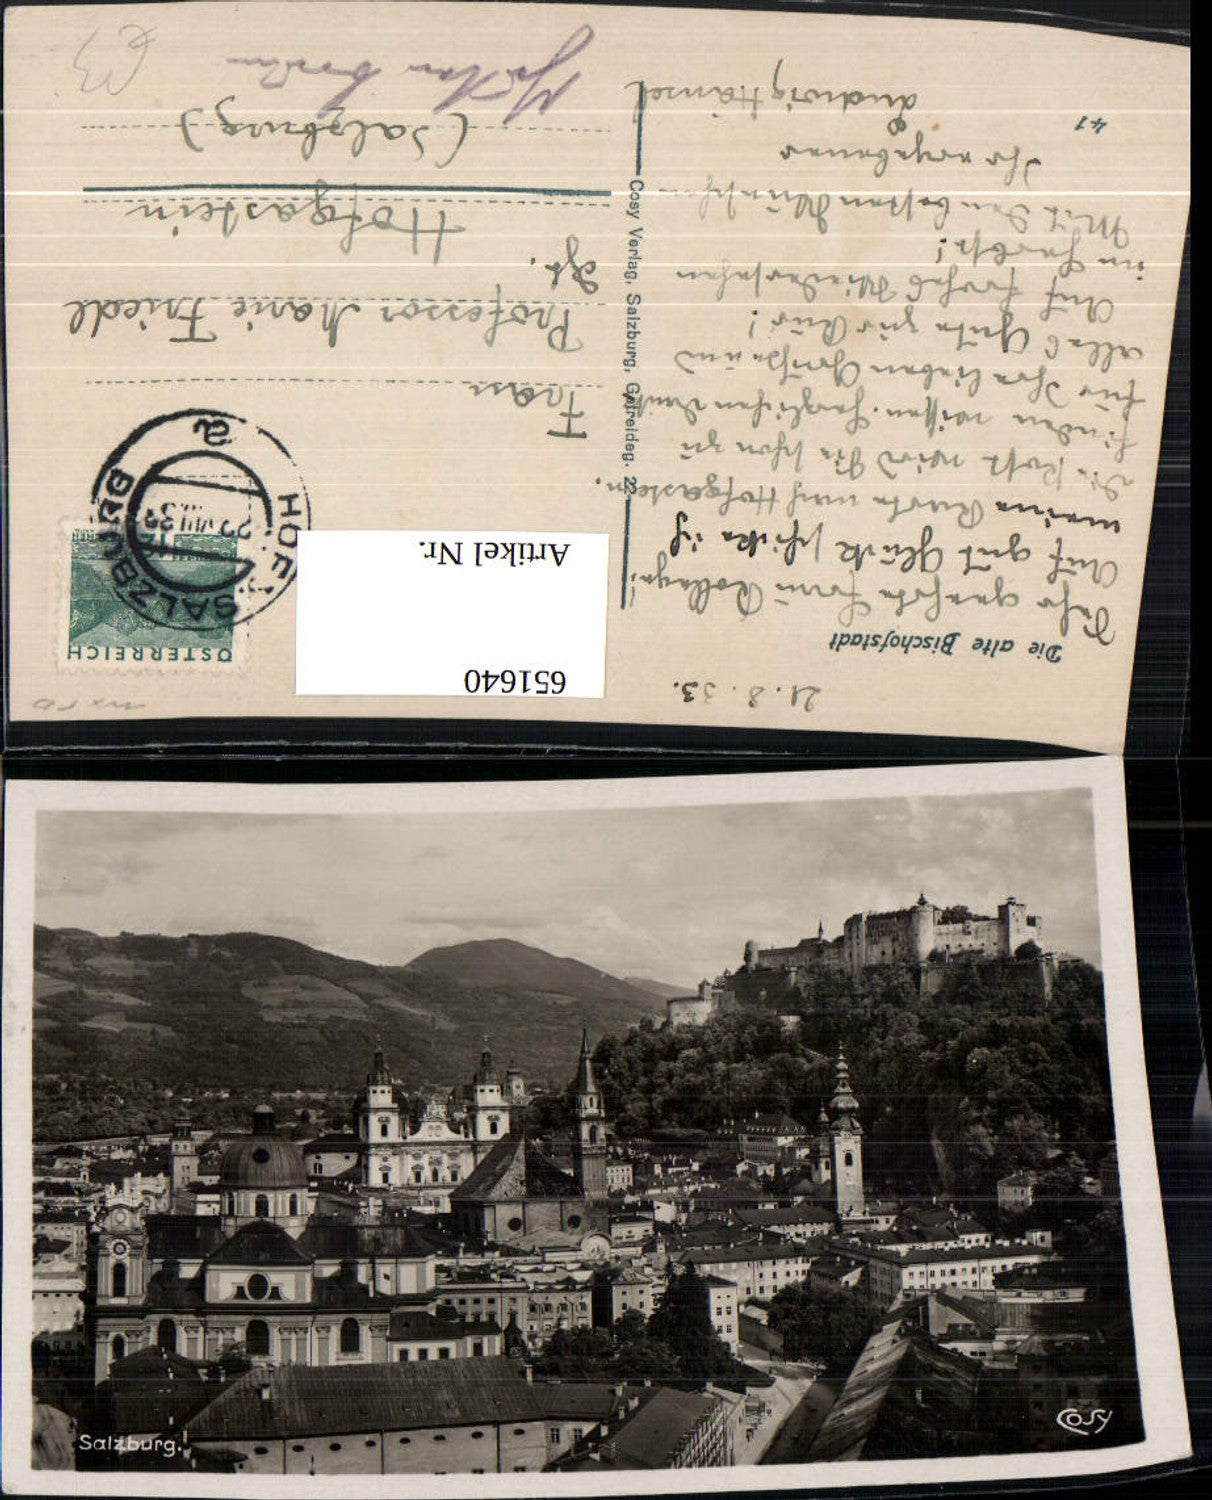 21. 8. 33.
Die alte Bischofstadt
Sehr geehrte Frau Kollega!
Auf gut Glück schicke ich
meine Karte nach Hofgastein.
Die Post wird Sie schon zu
finden wissen. Herzlichen Dank
für Ihre lieben Grüße und
alles Gute zur Kur!
Auf frohes Wiedersehen
im Herbst!
Mit den besten Wünschen
Ihr ergebener
Ludwig Hänsel
41
Cosy Verlag, Salzburg, Getreideg. 22
651640
Artikel Nr.
ÖSTERREICH
SALZBURG
a
Frau
Professor Marie Friedl
Hofgastein
(Salzburg)
Salzburg.
Cosy